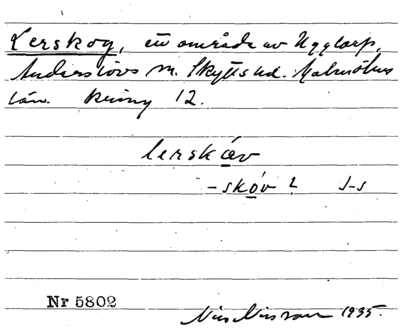 Lerskog, ett område av Ugglarp,
Anderslövs sn. Skytts hd. Malmöhus
län. 12.
lerskæv
-skóv ? J-s
Nr 5802
Nils Nilsson 1935.